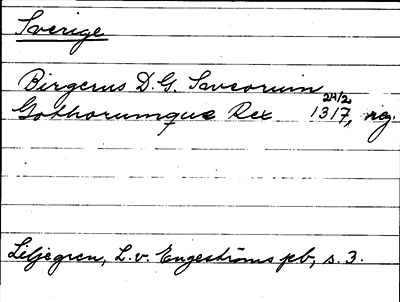 Sverige
Birgerus D. G. Sveorum
Gothorumque Rex 24/2 1317, reg.
Liljegren, L. v. Engeströms pb, s. 3.